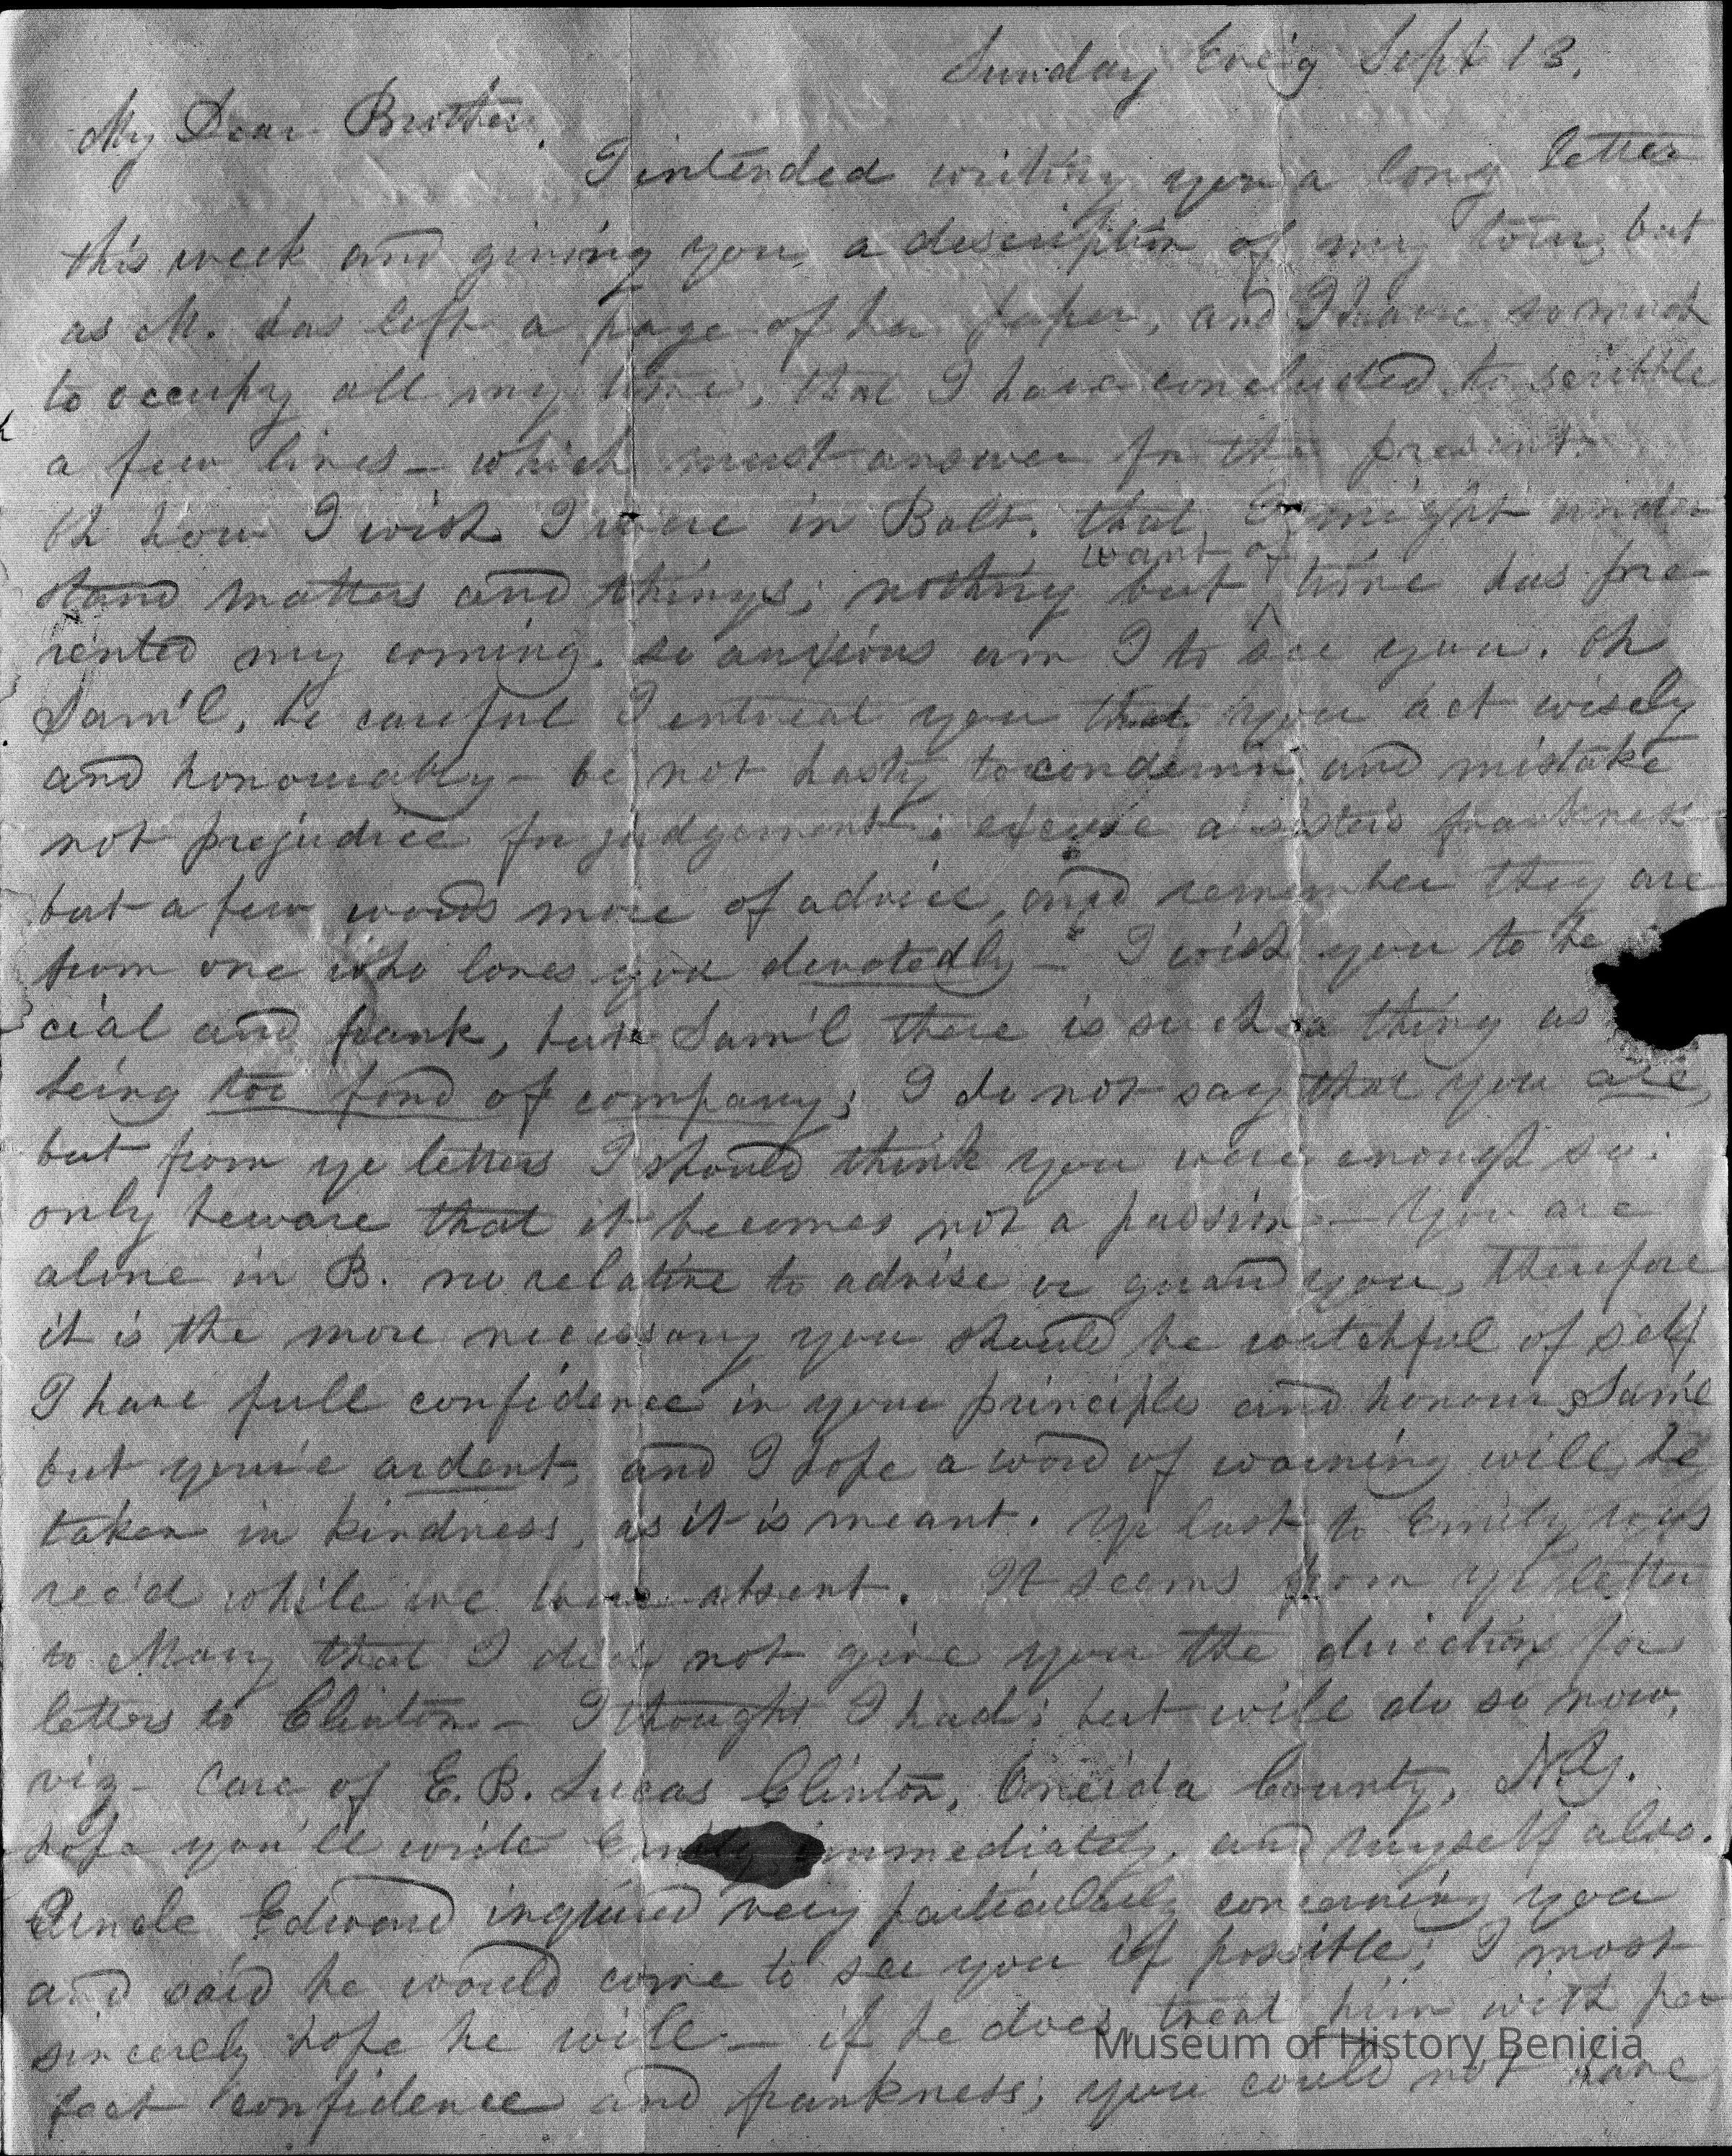 Sunday Eve'g Sept 13.
My Dear Brother.
I intended writing you a long letter
this week and giving you a description of my tour, but
as M. has left a page of her paper, and I have so much
to occupy all my time, that I have concluded to scribble
a few lines – which must answer for the present.
Oh how I wish I were in Balt. that I might under
stand matters and things; nothing but want of time has pre
vented my coming. so anxious am I to see you. Oh
Sam'l, be careful I entreat you that you act wisely
and honourably – be not hasty to condemn and mistake
not prejudice for judgement; excuse a sister's frankness
but a few words more of advice, and remember they are
from one who loves you devotedly – I wish you to be
cial and frank, but Sam'l there is such a thing as
being too fond of company; I do not say that you are,
but from yr letters I should think you were enough so:
only beware that it becomes not a passion – You are
alone in B. no relative to advise or guard you, therefore
it is the more necessary you should be watchful of self
I have full confidence in your principles and honour, Sam'l
but you're ardent, and I hope a word of warning will be
taken in kindness, as it is meant. Yr last to Emily was
rec'd while we were absent. It seems from yr letter
to Mary that I did not give you the directions for
letters to Clinton – I thought I had; but will do so now,
viz – Care of E. B. Lucas Clinton, Oneida County, N.Y.
hope you'll write Emily immediately, and myself also.
Uncle Edward inquired very particularly concerning you
and said he would come to see you if possible; I most
sincerely hope he will – if he does, treat him with per
fect confidence and frankness; you could not have
Museum of History Benicia